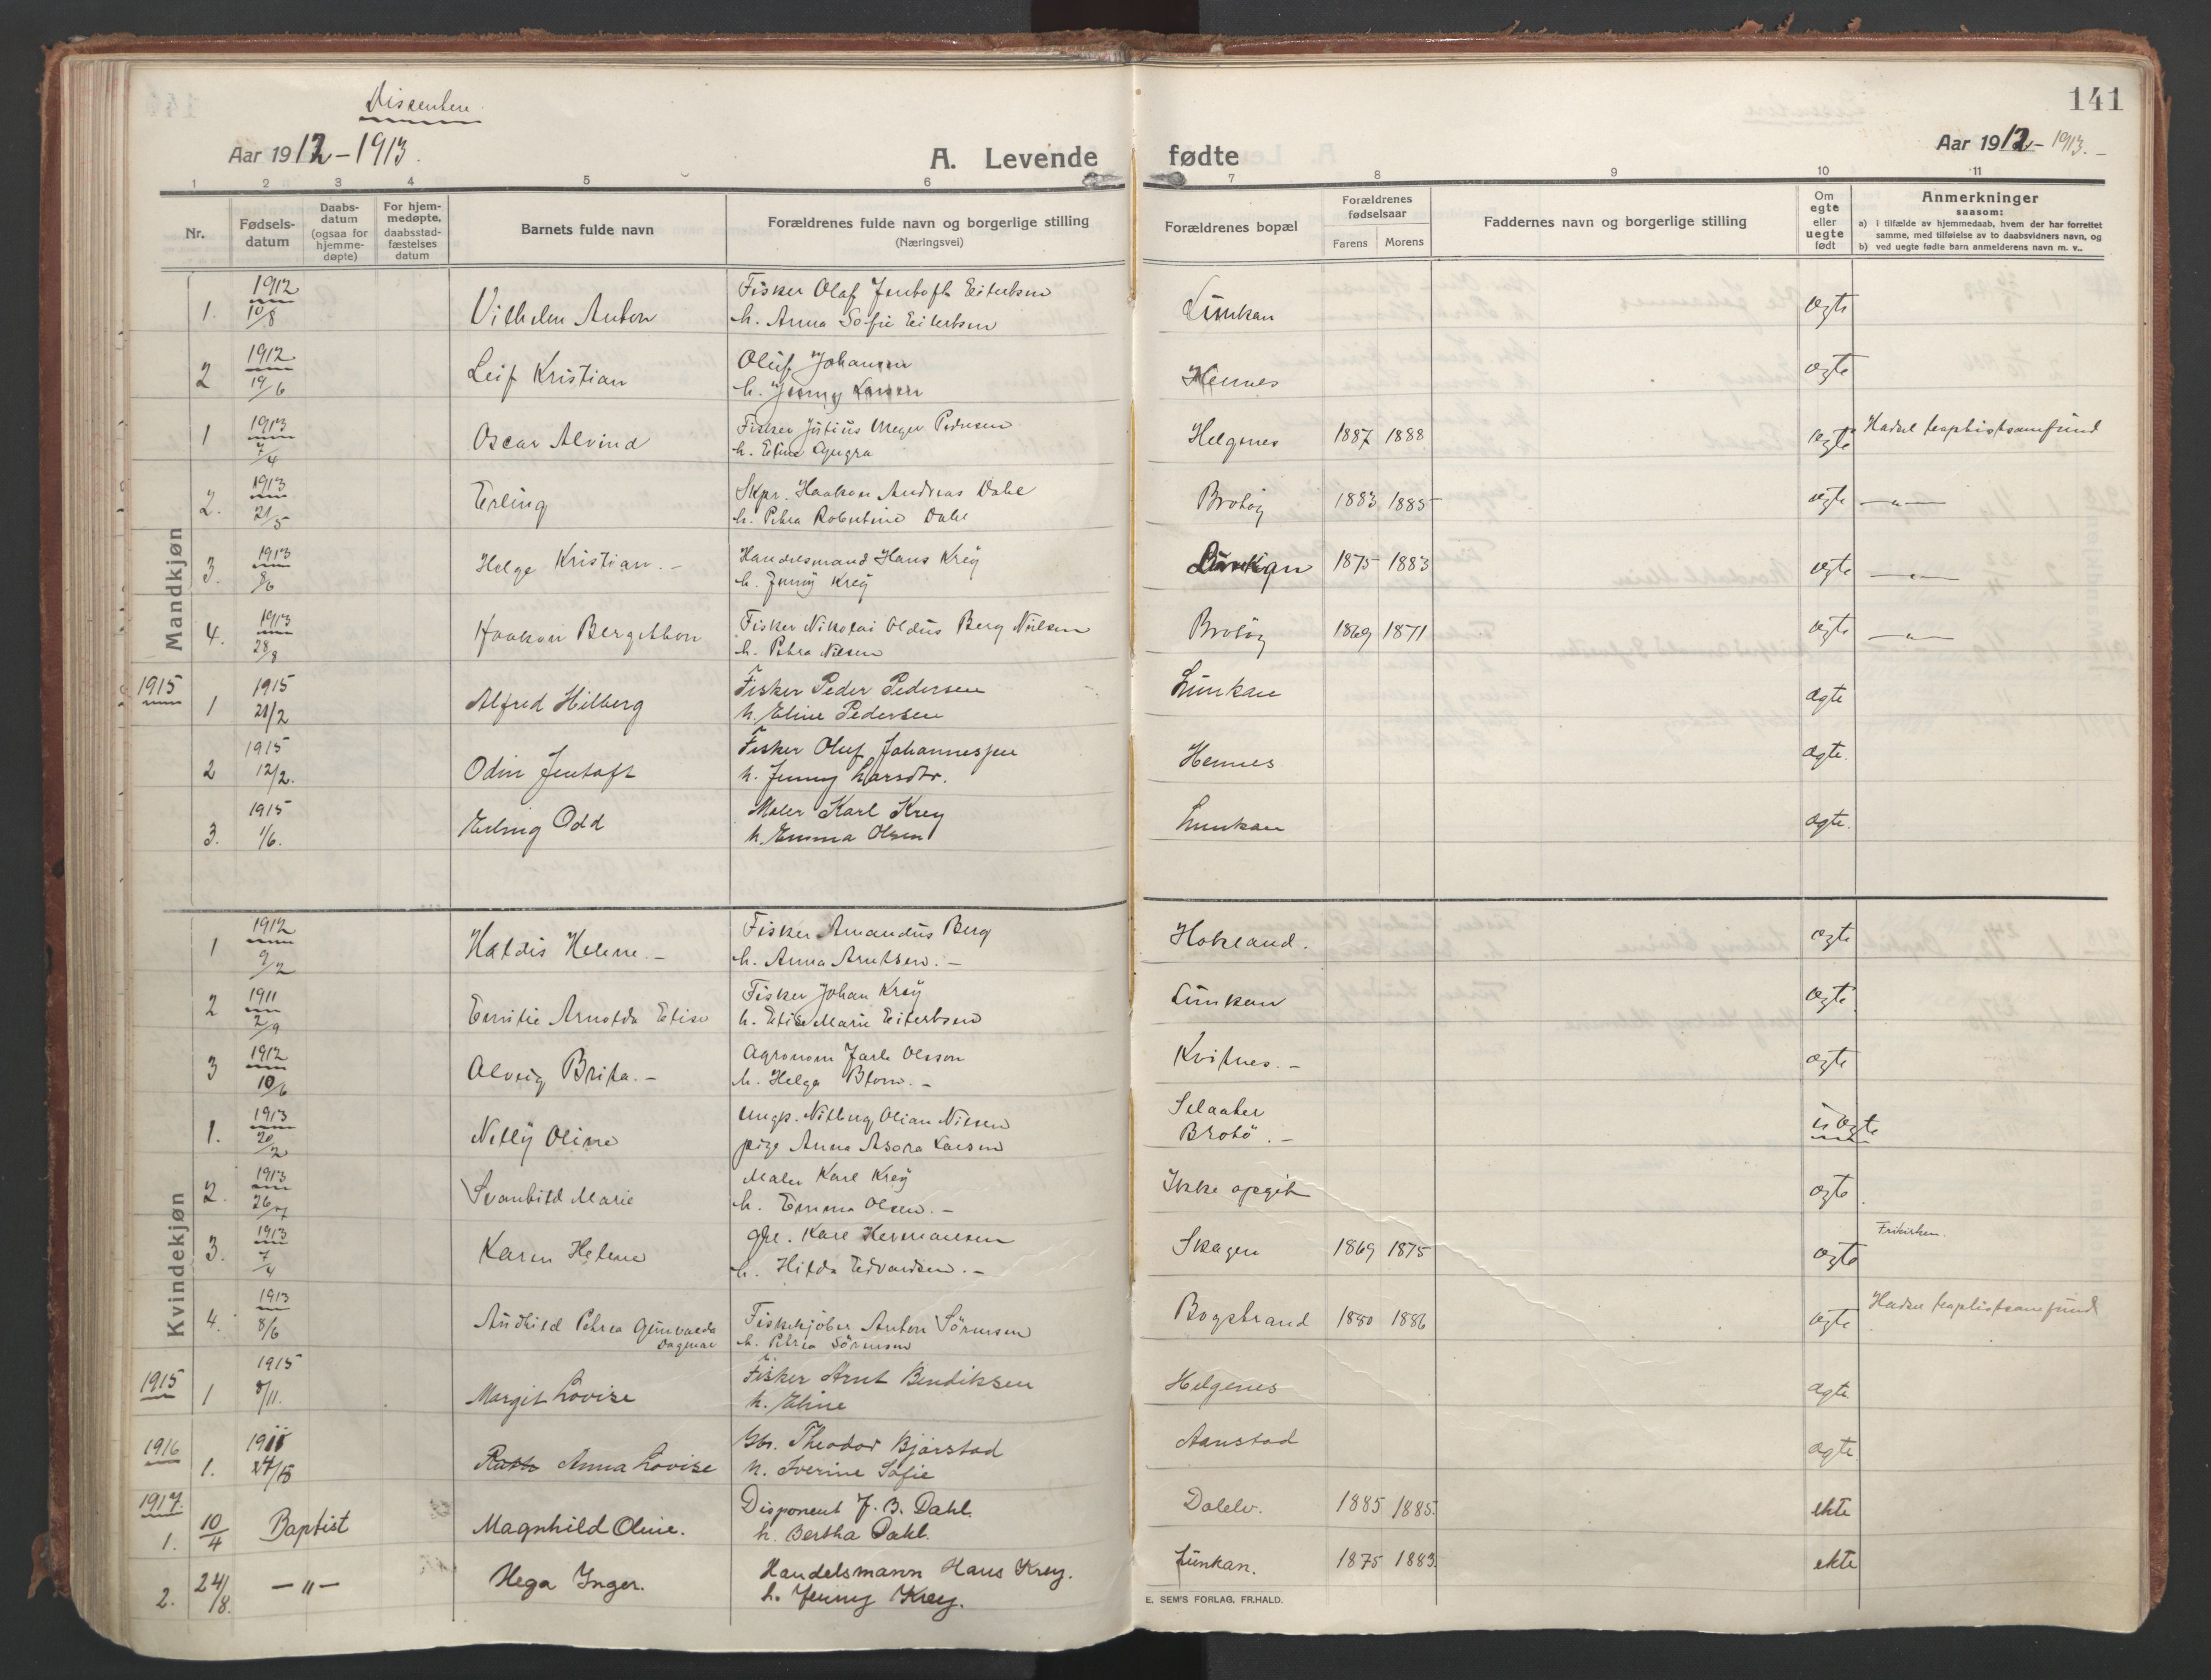 Dissentere.
141
Aar 1912-1913.
A. Levende fødte
Aar 1912-1913.-
1 2 3 4 5 6 7 8 9 10 11
Nr.
Fødsels-
datum
Daabs-
datum
(ogsaa for
hjemme-
døpte)
For hjem-
medøpte,
daabsstad-
fæstelses
datum
Barnets fulde navn
Forældrenes fulde navn og borgerlige stilling
(Næringsvei)
Forældrenes bopæl
Forældrenes
fødselsaar
Farens Morens
Faddernes navn og borgerlige stilling
Om
egte
eller
uegte
født
Anmerkninger
saasom:
a) i tilfælde av hjemmedaab, hvem der har forrettet
samme, med tilføielse av to daabsvidners navn, og
b) ved uegte fødte barn anmelderens navn m. v..
Mandkjøn
1. 1912 10/8 Vilhelm Anton Fisker Olaf Jentoft Eilertsen Lunkan ægte
h. Anna Sofie Eilertsen
2 1912 19/6 Leif Kristian Oluf Johansen Hennes ægte
h. Jenny Larsen
1 1913 7/4 Oscar Alvind Fisker Julius Meyer Pedersen Helgenes 1887 1888 ægte Hadsel baptistsamfund
h. Eline
2. 1913 21/5 Erling Skpr. Haakon Andreas Dahl Brotøy 1883 1885 ægte -"-
h. Petra Robertine Dahl
3. 1913 8/6 Helge Kristian.- Handelsmand Hans Krey Lunkan 1875 1883 ægte -"-
h. Jenny Krey
4. 1913 28/8 Haakon Bergithon Fisker Nikolai Oldus Berg Nilsen Brotøy 1869 1871 ægte -"-
h. Petra Nilsen
1915 1 1915 21/2 Alfred Hilberg Fisker Peder Pedersen Lunkan ægte
h. Eline Pedersen
2 1915 12/2. Odin Jentoft Fisker Oluf Johannessen Hennes ægte.
h. Jenny Larsdtr.
3. 1915 1/6. Erling Odd Maler Karl Krey Lunkan ægte.
h. Emma Olsen
Kvindekjøn
1 1912 9/2 Haldis Helene.- Fisker Amandus Berg Hokland. ægte
h. Anna Arntsen.-
2 1911 2/9 Emilie Arnolda Elise Fisker Johan Krey Lunkan ægte
h. Elise Marie Eilertsen
3 1912 10/6 Alveig Brita.- Agronom Jarle Olsson Kvitnes.- ægte
h. Helga Blom.-
1. 1913 20/2 Nelly Oline Ungk. Nilberg Olian Nilsen Selaater uægte
pige Anna Asora Larsen Brotø.-
2. 1913 26/7 Svanhild Marie Maler Karl Krey Ikke opgit ægte
h. Emma Olsen.-
3. 1913 7/4 Karen Helene Gbr. Kare Hermansen Skagen 1869 1875 ægte Frikirken.
h. Hilda Edvardsen.-
4. 1913 8/6 Audhild Petrea Gunvalda Fiskekjøber Anton Sørensen Bogstrand 1880 1886 ægte Hadsel baptistsamfund
Dagmar h. Petrea Sørensen
1915 1 1915 8/11. Margit Lovise Fisker Arnt Bendiksen Helgenes ægte
h. Eline
1916 1. Anna Lovise Gbr. Theodor Bjørstad Aanstad ægte
h. Iverine Sofie
1917. 1. 10/4 Baptist Magnhild Oline. Disponent J. B. Dahl. 1885 1885. ekte
h. Bertha Dahl.
2. 24/8. -"- Hega Inger. Handelsmann Hans Krey. Lunkan. 1875 1883. ekte
h. Jenny Krey.
E. SEM'S FORLAG, FR.HALD.